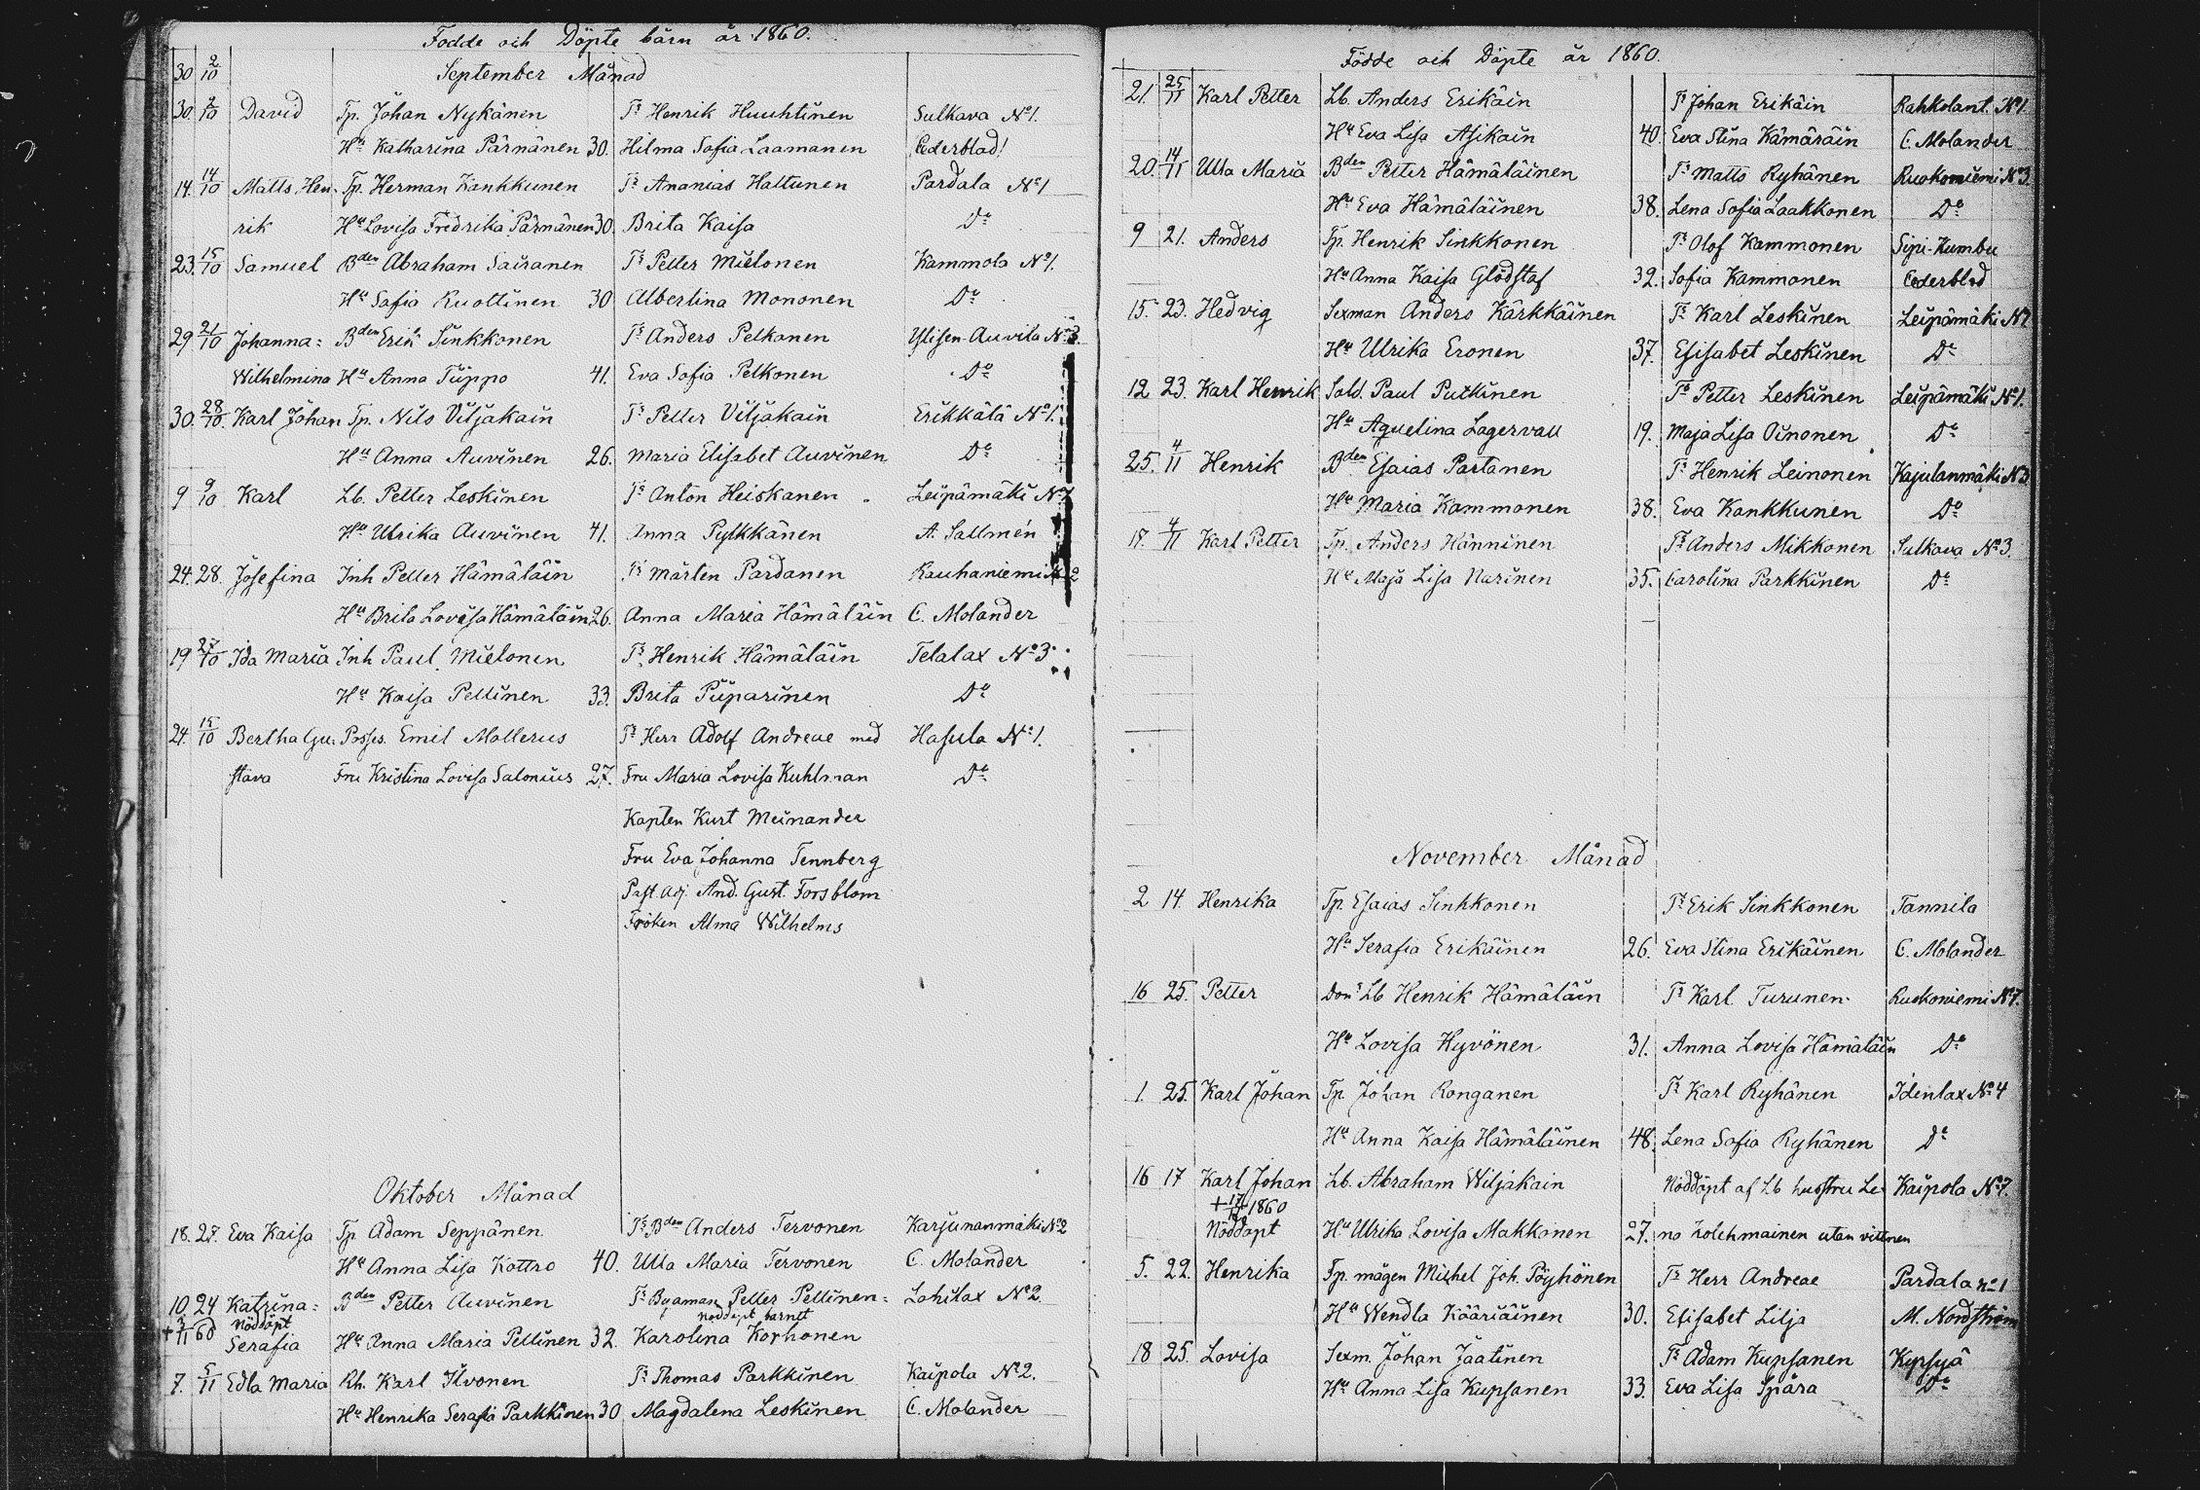 Födde och Döpte barn år 1860.
30 2/10 September Månad
30. 2/10 David Tp. Johan Nykänen Ts Henrik Huuhtinen Sulkava No 1.
Hu Katharina Pärnänen 30. Hilma Sofia Laamanen Cederblad!
14. 14/10 Matts, Hen- Tp. Herman Kankkunen Ts Ananias Haltunen Pardala No 1
rik Hu Lovisa Fredrika Pärnänen 30. Brita Kaisa Do
23. 15/10 Samuel Bden Abraham Sairanen Ts Petter Mielonen Kammola No 1.
Hu Sofia Ruottinen 30 Albertina Mononen Do
29 21/10 Johanna= Bden Erik Sinkkonen Ts Anders Pelkonen Ylisen-Auvila No 3.
Wilhelmina Hu Anna Tiippo 41. Eva Sofia Pelkonen Do
30. 28/10. Karl Johan Tp. Nils Viljakain Ts Petter Viljakain Erikkälä No 1.
Hu Anna Auvinen 26. Maria Elisabet Auvinen Do
9 9/10 Karl Lb. Petter Leskinen Ts Anton Heiskanen Leipämäki No 1
Hu Ulrika Auvinen 41. Anna Pylkkänen A. Sallmén
24. 28. Josefina Inh Petter Hämäläin Ts Mårten Pardanen Rauhaniemi No 2
Hu Brita Lovisa Hämäläin 26. Anna Maria Hämäläin C. Molander
19 27/10 Ida Maria Inh Paul Mielonen Ts Henrik Hämäläin Telalax No 3
Hu Kaisa Pellinen 33. Brita Piiparinen Do
24. 15/10 Bertha Gu- Posses. Emil Mollerus Ts Herr Adolf Andreae med Hasula No 1.
stava Fru Kristina Lovisa Salonius 27. Fru Maria Lovisa Kuhlman Do
Kapten Kurt Meinander
Fru Eva Johanna Tennberg
Past. adj. And. Gust. Forsblom
Fröken Alma Wilhelms
Oktober Månad
18. 27. Eva Kaisa Tp Adam Seppänen Ts Bden Anders Tervonen Karjunanmäki No 2
Hu Anna Lisa Kottro 40. Ulla Maria Tervonen C. Molander
10. 24 Katrina= Bden Petter Auvinen Ts Byaman Petter Pellinen= Lohilax No 2.
+ 3/11 60 Nöddöpt nöddöpt barnet
Serafia Hu Anna Maria Pellinen 32. Karolina Korhonen
7. 5/11 Edla Maria Rh. Karl Ilvonen Ts Thomas Parkkinen Kaipola No 2.
Hu Henrika Serafia Parkkinen 30 Magdalena Leskinen C. Molander
Födde och Döpte år 1860.
21. 25/11 Karl Petter Lb. Anders Erikäin Ts Johan Erikäin Rahkolant. No 1
Hu Eva Lisa Asikain 40. Eva Stina Kämäräin C. Molander
20. 14/11 Ulla Maria Bden Petter Hämäläinen Ts Matts Ryhänen Ruokoniemi No 3.
Hu Eva Hämäläinen 38. Lena Sofia Laakkonen Do
9 21. Anders Tp. Henrik Sinkkonen Ts Olof Kammonen Sipi-Kumbu
Hu Anna Kaisa Glödstaf 32. Sofia Kammonen Cederblad
15. 23. Hedvig Sexman Anders Kärkkäinen Ts Karl Leskinen Leipämäki No 1
Hu Ulrika Eronen 37. Elisabet Leskinen Do
12 23. Karl Henrik Sold. Paul Putkinen Ts Petter Leskinen Leipämäki No 1.
Hu Aquelina Lagervall 19. Maja Lisa Oinonen Do
25. 4/11 Henrik Bden Esaias Partanen Ts Henrik Leinonen Kajulanmäki No 3
Hu Maria Kammonen 38. Eva Kankkunen Do
17. 4/11 Karl Petter Tp. Anders Hänninen Ts Anders Mikkonen Sulkava No 3.
Hu Maja Lisa Narinen 35. Carolina Parkkinen Do
November Månad
2 14. Henrika Tp Esaias Sinkkonen Ts Erik Sinkkonen Tannila
Hu Serafia Erikäinen 26. Eva Stina Erikäinen C. Molander
16 25. Petter Lb Henrik Hämäläin Ts Karl Turunen Ruokoniemi No 7.
Hu Lovisa Hyvönen 31. Anna Lovisa Hämäläin Do
1. 25. Karl Johan Tp Johan Ronganen Ts Karl Ryhänen Idenlax No 4
Hu Anna Kaisa Hämäläinen 48. Lena Sofia Ryhänen Do
16 17 Karl Johan Lb. Abraham Wiljakain Nöddöpt af Lb hustru Le- Kaipola No 7.
+ 17/11 1860
Nöddöpt Hu Ulrika Lovisa Makkonen 27. na Kolehmainen utan vittnen
5. 22. Henrika Tp. mågen Michel Joh. Pöyhönen Ts Herr Andreae Pardala no 1
Hu Wendla Kääriäinen 30. Elisabet Lilja M. Nordström
18 25. Lovisa Sexm. Johan Jaatinen Ts Adam Kupsanen Kypsyä
Hu Anna Lisa Kupsanen 33. Eva Lisa Spåra Do